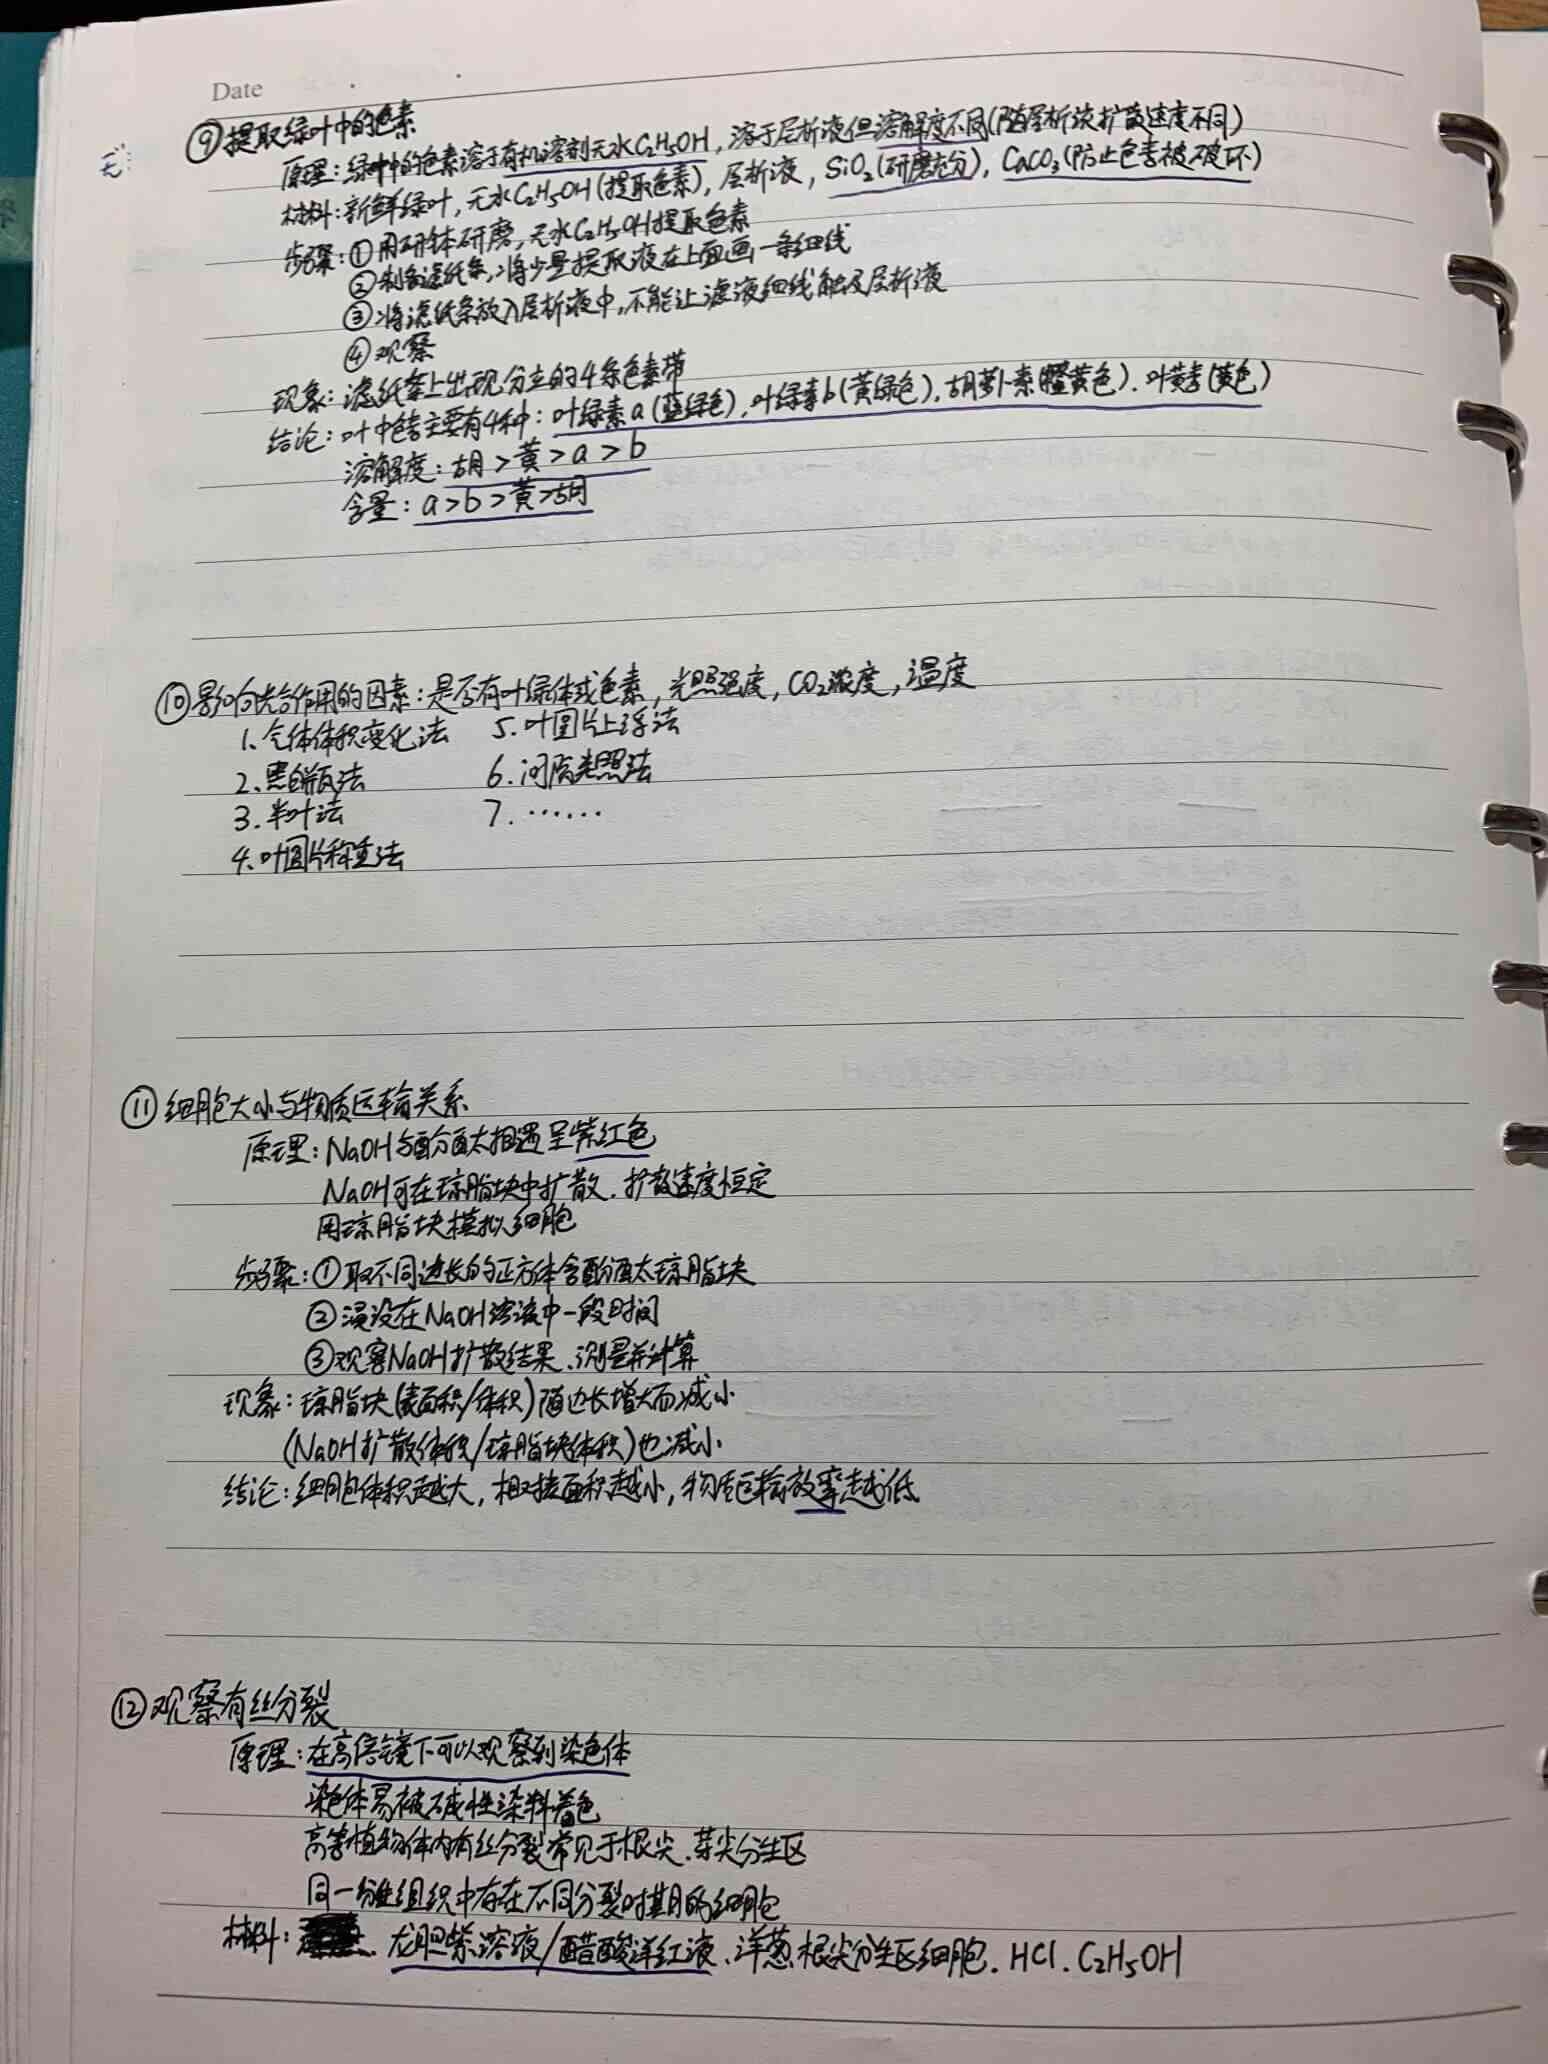 Date
⑨提取绿叶中的色素
原理：绿叶中的色素溶于有机溶剂无水C₂H₅OH，溶于层析液但溶解度不同(随层析液扩散速度不同)
材料：新鲜绿叶，无水C₂H₅OH(提取色素)，层析液，SiO₂(研磨充分)，CaCO₃(防止色素被破坏)
步骤：①用研钵研磨，无水C₂H₅OH提取色素
②制备滤纸条，将少量提取液在上面画一条细线
③将滤纸条放入层析液中，不能让滤液细线触及层析液
④观察
现象：滤纸条上出现分立的4条色素带
结论：叶中色素主要有4种：叶绿素a(蓝绿色)，叶绿素b(黄绿色)，胡萝卜素(橙黄色)．叶黄素(黄色)
溶解度：胡>黄>a>b
含量：a>b>黄>胡
⑩影响光合作用的因素：是否有叶绿体或色素，光照强度，CO₂浓度，温度
1、气体体积变化法 5.叶圆片上浮法
2、黑白瓶法 6.间隔光照法
3.半叶法 7.……
4、叶圆片称重法
⑪细胞大小与物质运输关系
原理：NaOH与酚酞相遇呈紫红色
NaOH可在琼脂块中扩散．扩散速度恒定
用琼脂块模拟细胞
步骤：①取不同边长的正方体含酚酞琼脂块
②浸没在NaOH溶液中一段时间
③观察NaOH扩散结果、测量并计算
现象：琼脂块(表面积/体积)随边长增大而减小
(NaOH扩散体积/琼脂块体积)也减小
结论：细胞体积越大，相对表面积越小，物质运输效率越低
⑫观察有丝分裂
原理：在高倍镜下可以观察到染色体
染色体易被碱性染料着色
高等植物体内有丝分裂常见于根尖、芽尖分生区
同一分生组织中存在不同分裂时期的细胞
材料：、龙胆紫溶液/醋酸洋红液、洋葱根尖分生区细胞．HCl．C₂H₅OH